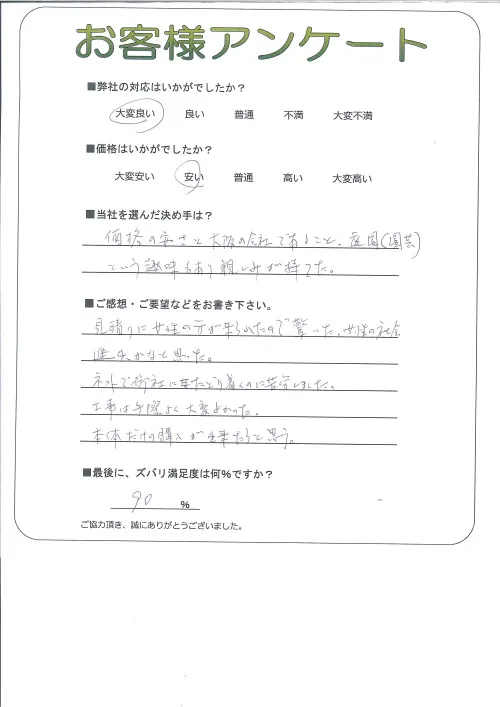 お客様アンケート
■弊社の対応はいかがでしたか？
大変良い 良い 普通 不満 大変不満
■価格はいかがでしたか？
大変安い 安い 普通 高い 大変高い
■当社を選んだ決め手は？
価格の安さと大阪の会社であること、庭園(園芸)
という趣味もあり親しみが持てた。
■ご感想・ご要望などをお書き下さい。
見積りに女性の方が来られたので驚いた。女性の社会
進出かなと思った。
ネットで御社にたどり着くのに苦労しました。
工事は手際よく大変よかった。
本体だけの購入が出来たらと思う。
■最後に、ズバリ満足度は何％ですか？
90 %
ご協力頂き、誠にありがとうございました。